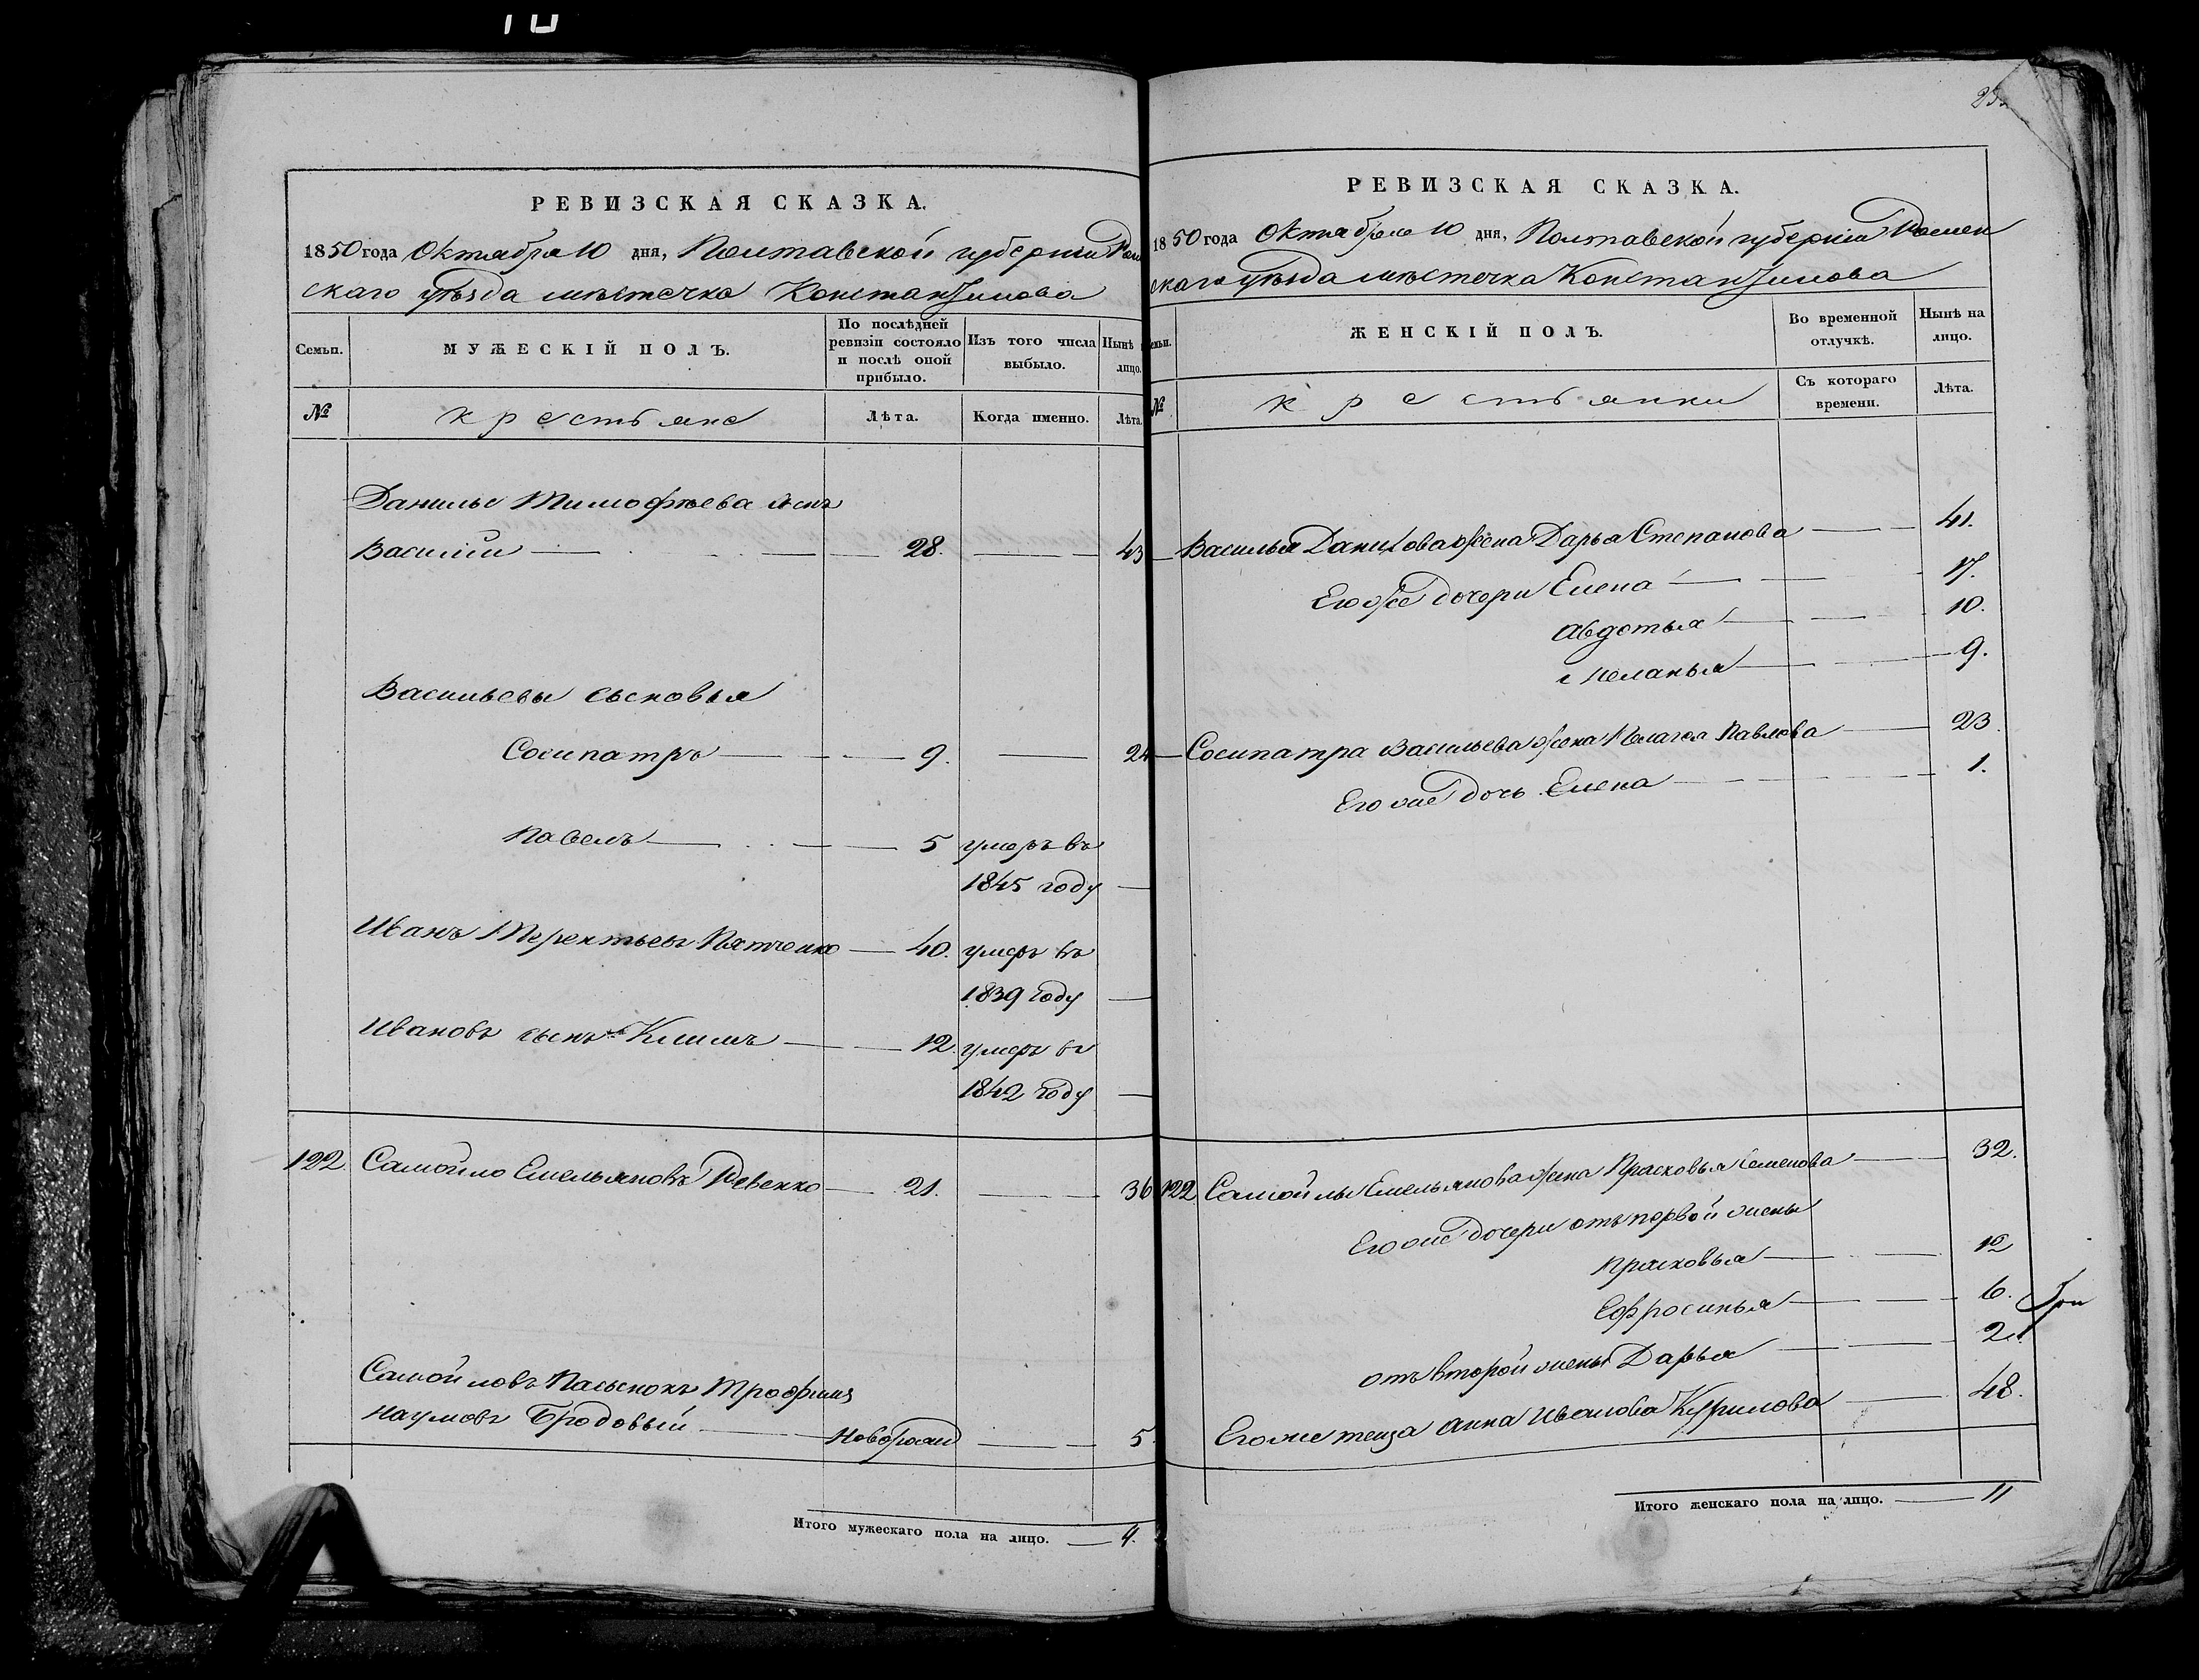 РЕВИЗСКАЯ СКАЗКА.
1850 года Октября 10 дня, Полтавской губерніи Ром
скаго уѣзда мѣстечка Константинова
Семьи. МУЖЕСКІЙ ПОЛЪ. По послѣдней ревизіи состояло и послѣ оной прибыло. Изъ того числа выбыло. Нынѣ лицо.
№ крестьяне Лѣта. Когда именно. Лѣта.
Данилы Тимофѣева сынъ
Василій 28. 43
Васильевы сыновья
Сосипатръ 9. 24
Павелъ 5 умеръ въ
1845 году
Иванъ Терентьевъ Пятченко 40. умеръ въ
1839 году
Ивановъ сынъ Климъ 12. умеръ въ
1842 году
122. Самойло Емельяновъ Ревенко 21. 36
Самойловъ Пасынокъ Трофимъ
Наумовъ Бродовый Новорожд 5
Итого мужескаго пола на лицо. 4.
РЕВИЗСКАЯ СКАЗКА.
1850 года Октября 10 дня, Полтавской губерніи Ромен
скаго уѣзда мѣстечка Константинова
емьи. ЖЕНСКІЙ ПОЛЪ. Во временной отлучкѣ. Нынѣ на лицо.
№ крестьянки Съ котораго времени. Лѣта.
Василья Данилова жена Дарья Степанова 41.
Его же дочери Елена 17.
Авдотья 10.
Меланья 9.
Сосипатра Васильева жена Пелагея Павлова 23
Его же дочь Елена 1.
122 Самойлы Емельянова жена Прасковья Семенова 32.
Его же дочери отъ первой жены
Прасковья 12
Ефросинья 6.
отъ второй жены Дарья 2.
Его же теща Анна Иванова Курилова 48.
Итого женскаго пола на лицо. 11